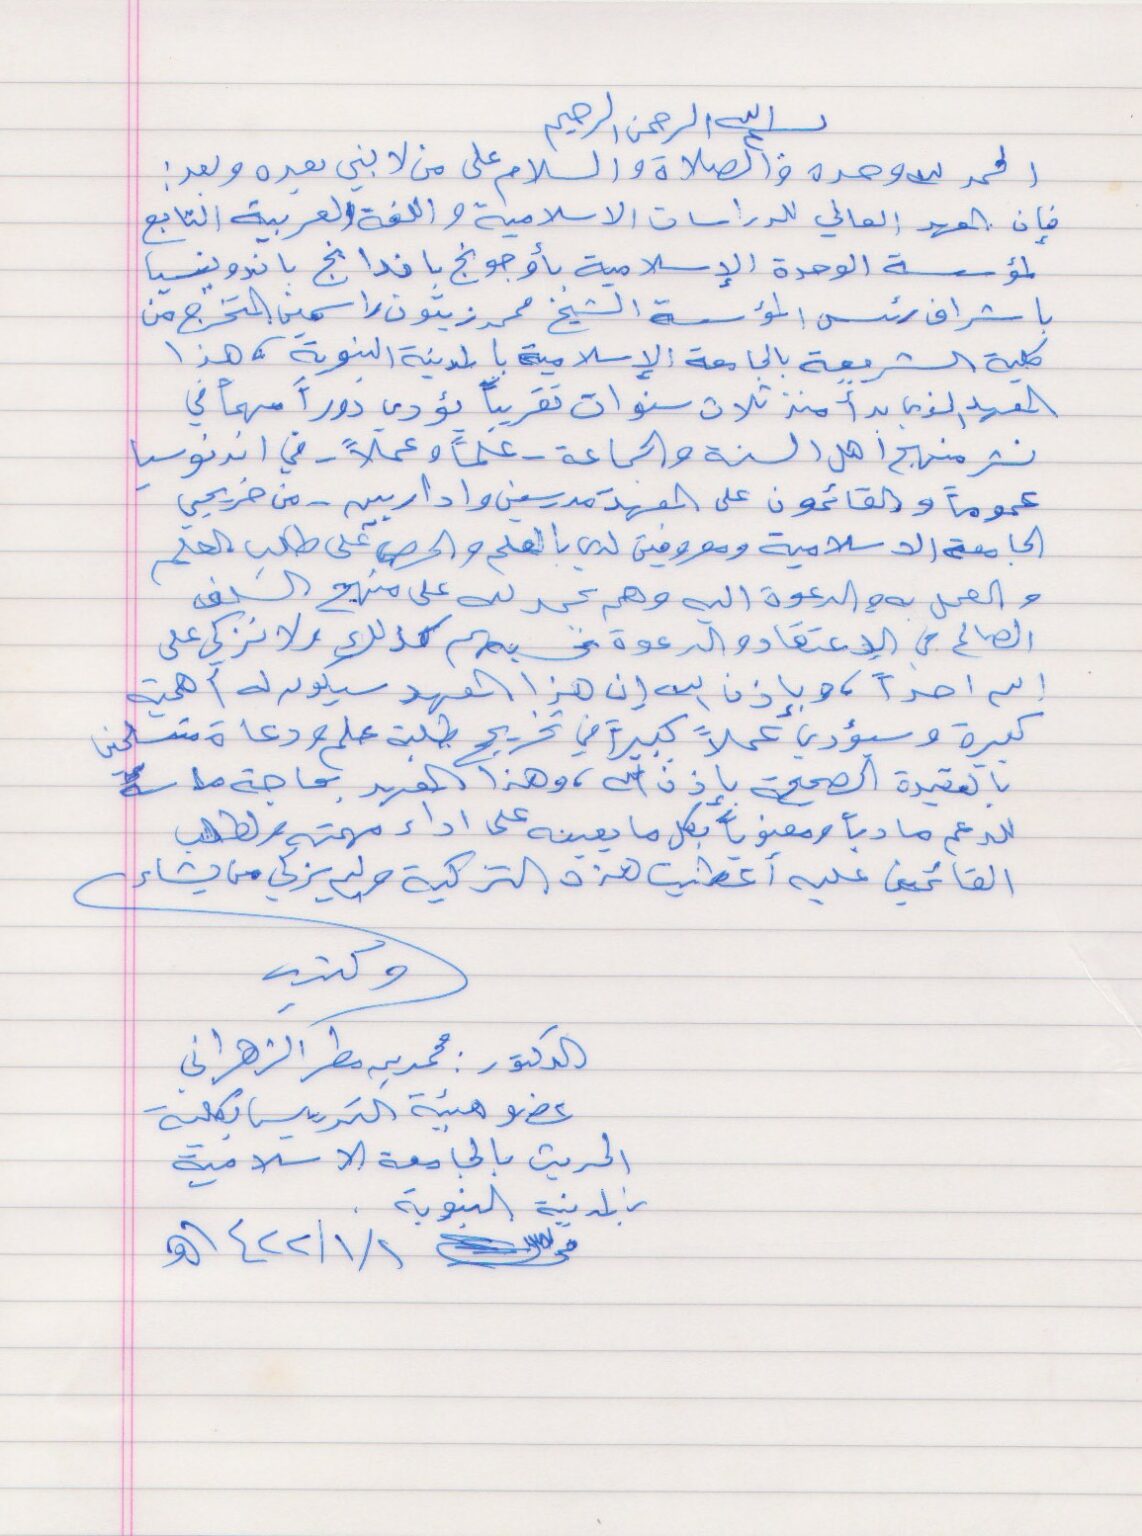 بسم الله الرحمن الرحيم
الحمد لله وحده والصلاة والسلام على من لا نبي بعده وبعد:
فإن المعهد العالي للدراسات الاسلامية واللغة العربية التابع
لمؤسسة الوحدة الإسلامية بأوجونج بافدانج باندونيسيا
باشراف رئيس المؤسسة الشيخ محمد زيتون راسمين المتخرج من
كلية الشريعة بالجامعة الإسلامية بالمدينة النبوية، هذا
المعهد الذي بدأ منذ ثلاث سنوات تقريباً يؤدي دوراً مهماً في
نشر منهج أهل السنة والجماعة - علماً وعملاً - في اندنوسيا
عموماً والقائمون على المعهد مدرسين واداريين - من خريجي
الجامعة الاسلامية ومعروفين لدي بالعلم والحرص على طلب العلم
والعمل به والدعوة اليه وهم بحمد لله على منهج السلف
الصالح في الاعتقاد والدعوة نحسبهم كذلك ولا نزكي على
الله احداً، وبإذن الله إن هذا المعهد سيكون له أهمية
كبيرة وسيؤدي عملاً كبيراً في تخريج طلبة علم ودعاة متسلحين
بالعقيدة الصحيحة بإذن الله، وهذا المعهد بحاجة ماسة
للدعم مادياً ومعنوياً بكل ما يعينه على اداء مهمته ولطلب
القائمين عليه أعطيت هذه التزكية والله يزكي من يشاء
وكتبه
الدكتور: محمد بن مطر الزهراني
عضو هيئة التدريس بكلية
الحديث بالجامعة الاسلامية
بالمدينة النبوية.
في ١٤٢٢/١/٢هـ